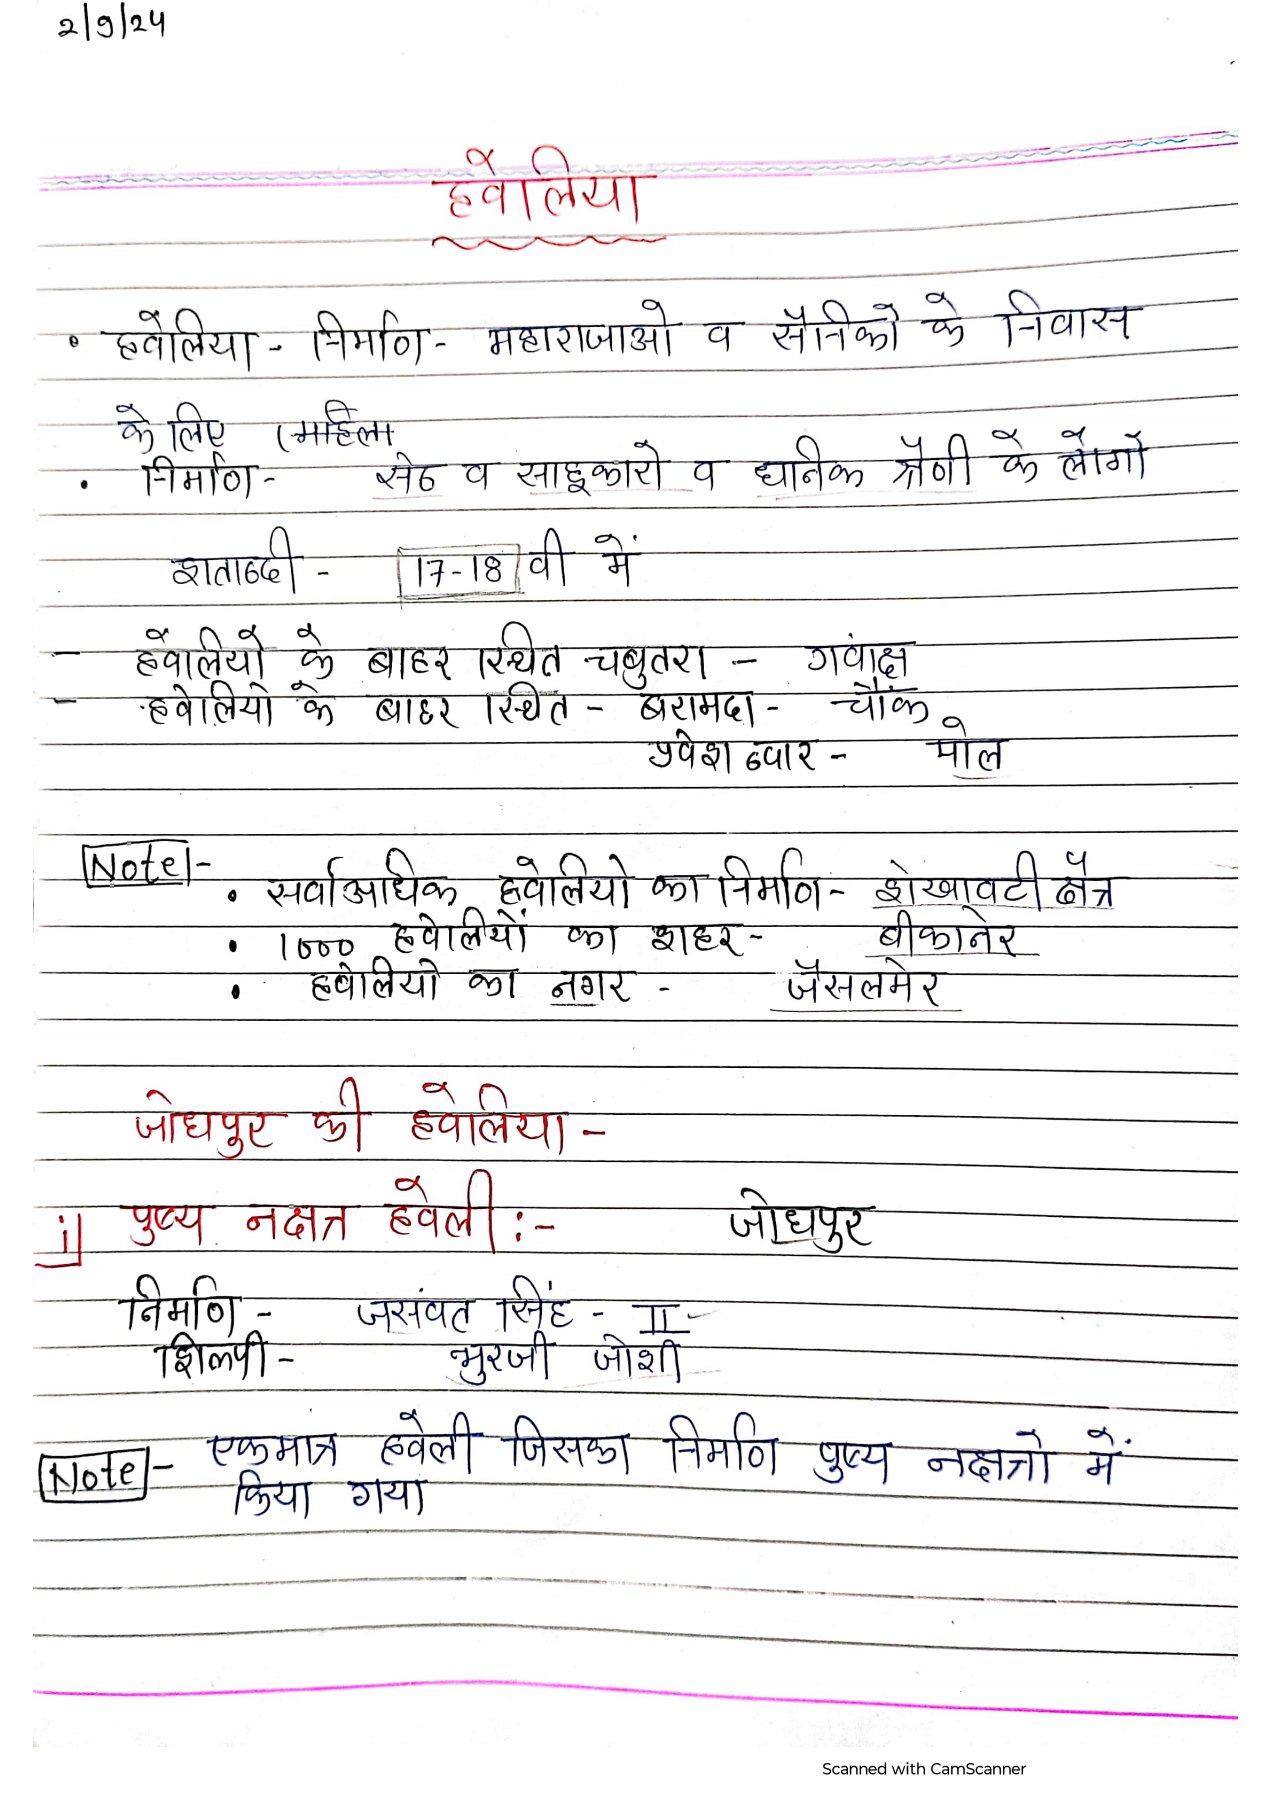 2/9/24
हवेलिया
• हवेलिया - निर्माण - महाराजाओ व सैनिको के निवास
के लिए (महिला
• निर्माण - सेठ व साहूकारो व धनिक श्रेणी के लोगों
शताब्दी - 17-18 वी में
- हवेलियो के बाहर स्थित चबुतरा - गवांक्ष
- हवेलियो के बाहर स्थित - बरामदा - चौंक
प्रवेश द्वार - पोल
Note - • सर्वाअधिक हवेलियो का निर्माण - शेखावटी क्षेत्र
• 1000 हवेलियों का शहर - बीकानेर
• हवेलियो का नगर - जैसलमेर
जोधपुर की हवेलिया -
i] पुष्य नक्षत्र हवेली :- जोधपुर
निर्माण - जसंवत सिंह - II
शिल्पी - भुरजी जोशी
Note - एकमात्र हवेली जिसका निर्माण पुष्य नक्षत्रो में
किया गया
Scanned with CamScanner